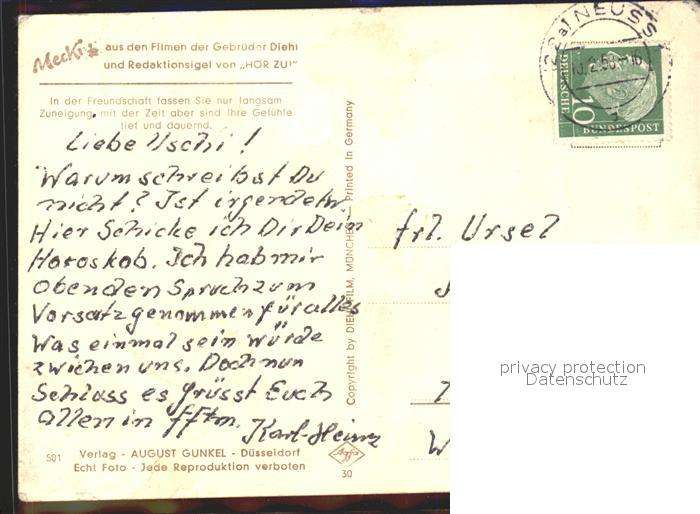 Mecki
aus den Filmen der Gebrüder Diehl
und Redaktionsigel von „HÖR ZU!"
In der Freundschaft fassen Sie nur langsam
Zuneigung, mit der Zeit aber sind Ihre Gefühle
tief und dauernd.
Liebe Uschi!
Warum schreibst Du
nicht? Ist irgendetw.
Hier Schicke ich Dir Dein
Horoskob. Ich hab mir
oben den Spruch zum
Vorsatz genommen für alles
Was einmal sein würde
zwichen uns. Doch nun
Schluss es grüsst Euch
allen in fftm.
Karl-Heinz
501 Verlag - AUGUST GUNKEL - Düsseldorf
Echt Foto - Jede Reproduktion verboten
Copyright by DIEHLFILM, MÜNCHEN — Printed in Germany
Agfa
30
(22a) NEUSS
2.58-16
DEUTSCHE
10
BUNDESPOST
frl. Ursel
W
privacy protection
Datenschutz